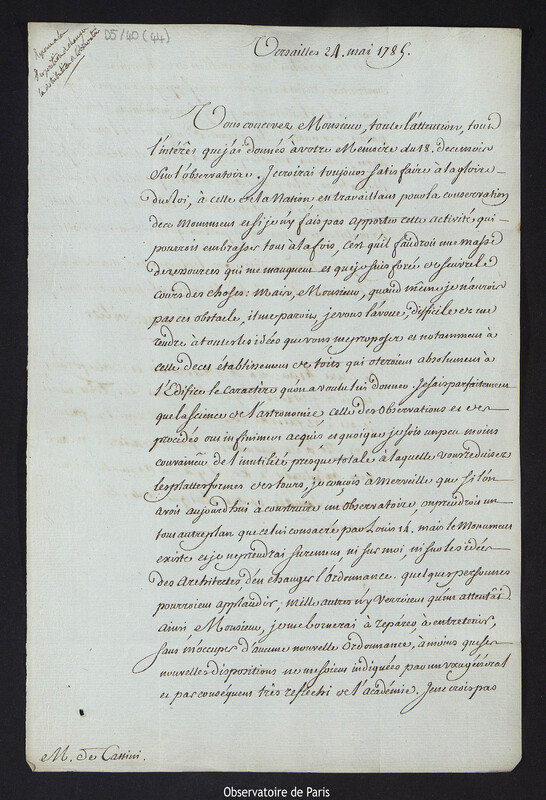 D5/40 (44)
Versailles 24. mai 1785.
Vous concevez Monsieur, toute l'attention, tout
l'interêt que j'ai donnés a votre Mémoire du 18. decembre
sur l'observatoire. Je croirai toujours satisfaire à la gloire
du Roi, à celle de la Nation en travaillant pour la conservation
de ce Monument et si je n'y fais pas apporter cette activité qui
pourroit embrasser tout à la fois, c'est qu'il faudroit une masse
de ressources qui me manquent et que je suis forcé de suivre le
cours des choses: Mais, Monsieur, quand même je n'aurois
pas cet obstacle, il me paroit, je vous l'avoue, difficile de me
rendre à toutes les idées que vous me proposez et notamment à
celle de cet établissement de toits qui oteroient absolument à
l'Edifice le Caractère qu'on a voulu lui donner. Je sais parfaitement
que la science de l'astronomie celle des Observations et des
procédés ont infiniment acquis et quoique je sois un peu moins
convaincu de l'inutilité presque totale à laquelle vous reduisez
les platteformes des tours, je conçois à merveille que si l'on
avoit aujourd'hui à construire un observatoire, on prendroit un
tout autre plan que celui consacré par Louis 14. mais le Monument
existe et je ne prendrai surement ni sur moi, ni sur les idées
des Architectes d'en changer l'Ordonnance. quelques personnes
pourroient applaudir, mille autres n'y verroient qu'un attentat
ainsi Monsieur, je me bornerai à réparer à entretenir,
sans m'occuper d'aucune nouvelle Ordonnance, à moins que ses
nouvelles dispositions ne me soient indiquées par un vœu général
et par conséquent très reflechi de l'académie. Je ne crois pas
M. de Cassini.
Observatoire de Paris